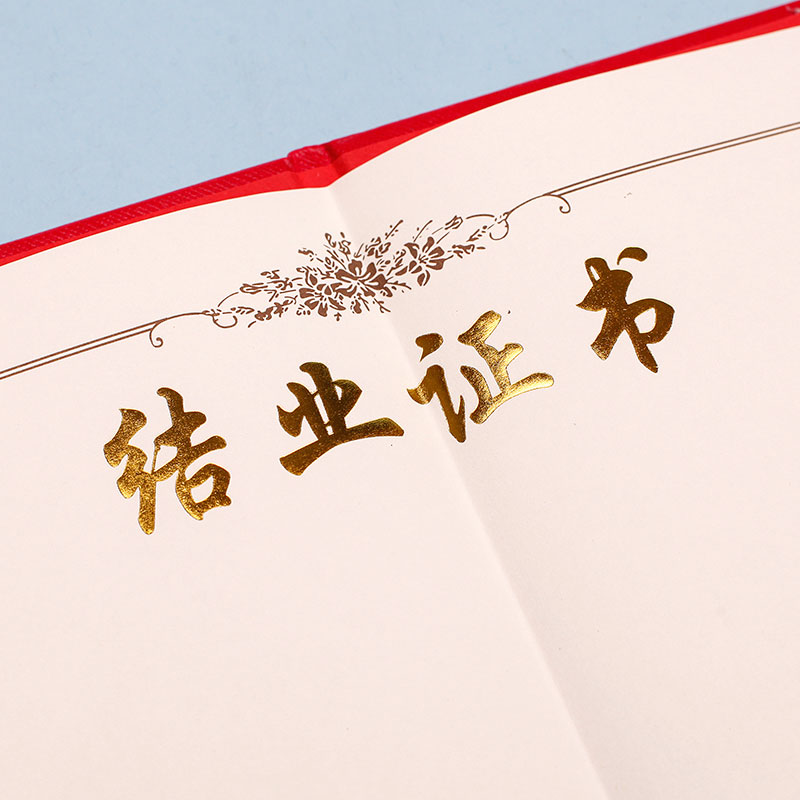 结业证书